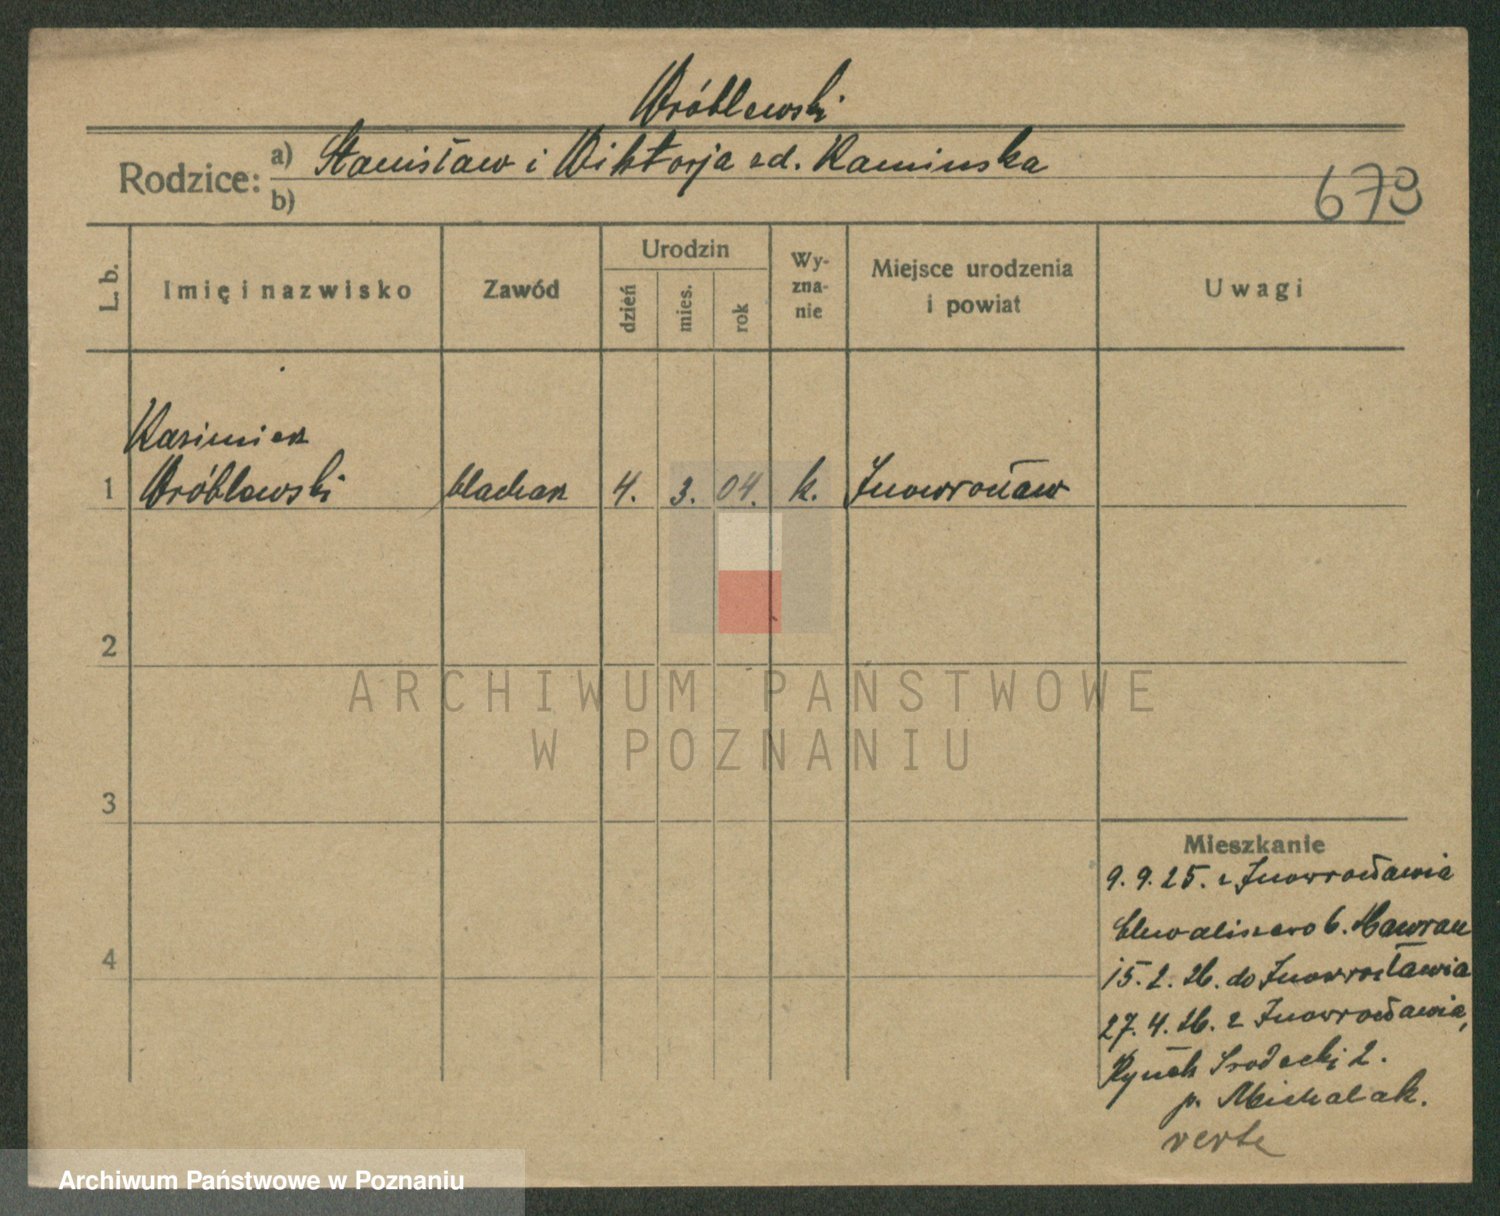 Wróblewski
Rodzice: a) Stanisław i Wiktorja zd. Kaminska
b)
673
L. b.
Imię i nazwisko
Zawód
Urodzin
dzień
mies.
rok
Wy-
zna-
nie
Miejsce urodzenia
i powiat
Uwagi
Kazimierz
1 Wróblewski blacharz 4. 3. 04. k. Inowrocław
2
3
4
Mieszkanie
9. 9. 25. z Inowrocławia
Chwaliszewo 6. Hawran
15. 2. 26. do Inowrocławia
27. 4. 26. z Inowrocławia,
Rynek Srodecki 2.
p. Michalak.
verte
ARCHIWUM PAŃSTWOWE
W POZNANIU
Archiwum Państwowe w Poznaniu